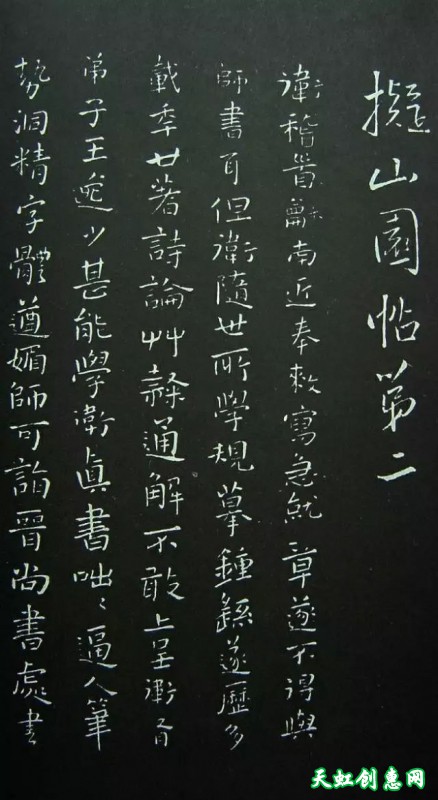 擬山園帖第二
衛稽首龢南近奉敕寫急就章遂不得與
師書耳但衛隨世所學規摹鍾繇遂歷多
載秊廿著詩論艸隸通解不敢上呈衛有
弟子王逸少甚能學衛眞書咄〻逼人筆
勢洞精字體遒媚師可詣晉尚書處書
天虹创惠网